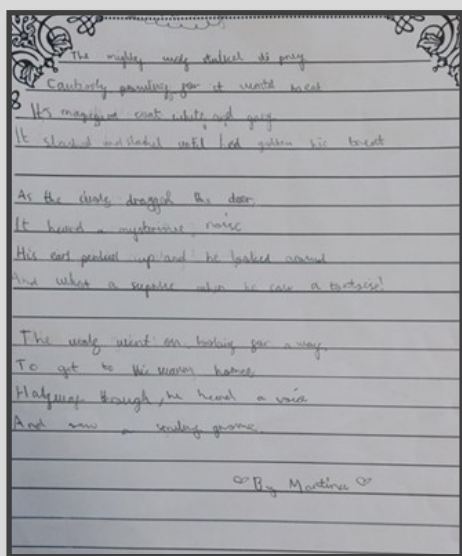 The mighty wolf stalked it's prey
Cautiously prowling for it would treat
It's magnificent coat white and grey
It stalked and stalked until had gotten his treat
As the wolf dragged the deer,
It heard a mysterious noise
His ears perked up and he looked around
And what a suprise when he saw a tortoise!
The wolf went on, looking for a way,
To get to his warm home
Halfway through, he heard a voice
And saw a sending gnome.
By Martina